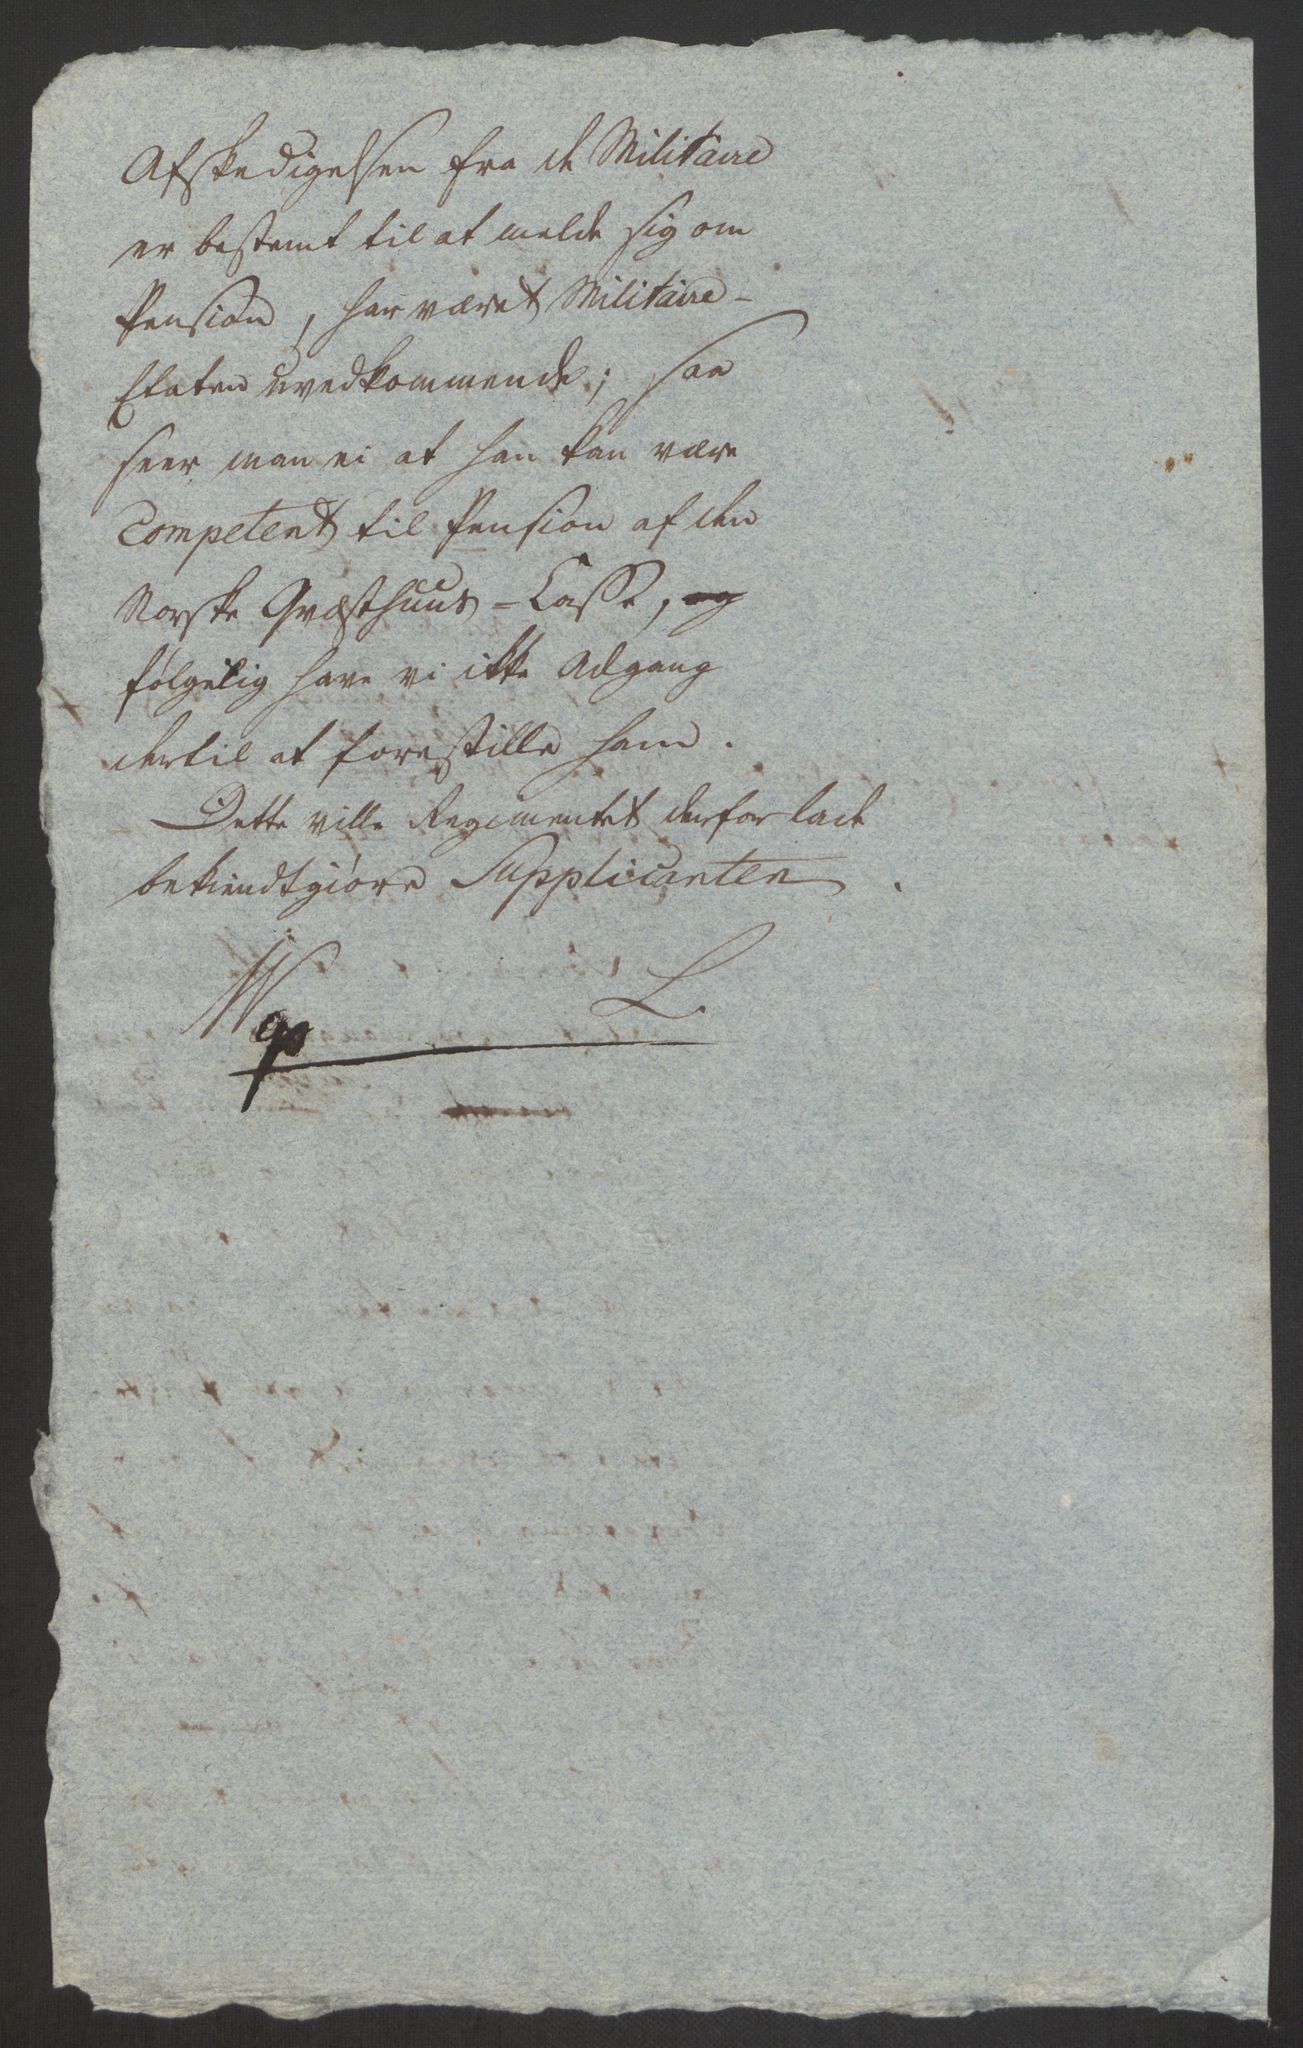 Afskedigelsen fra de Militaire
er bestemt til at melde sig om
Pension, har været Militaire-
Etaten uvedkommende; saa
seer man ei at han kan være
Competent til Pension af den
Norske Qvæsthuus-Casse, og
følgelig have vi ikke Adgang
dertil at forestille ham.
Dette ville Regimentet derfor lade
bekiendtgiöre Supplicanten.
W L.